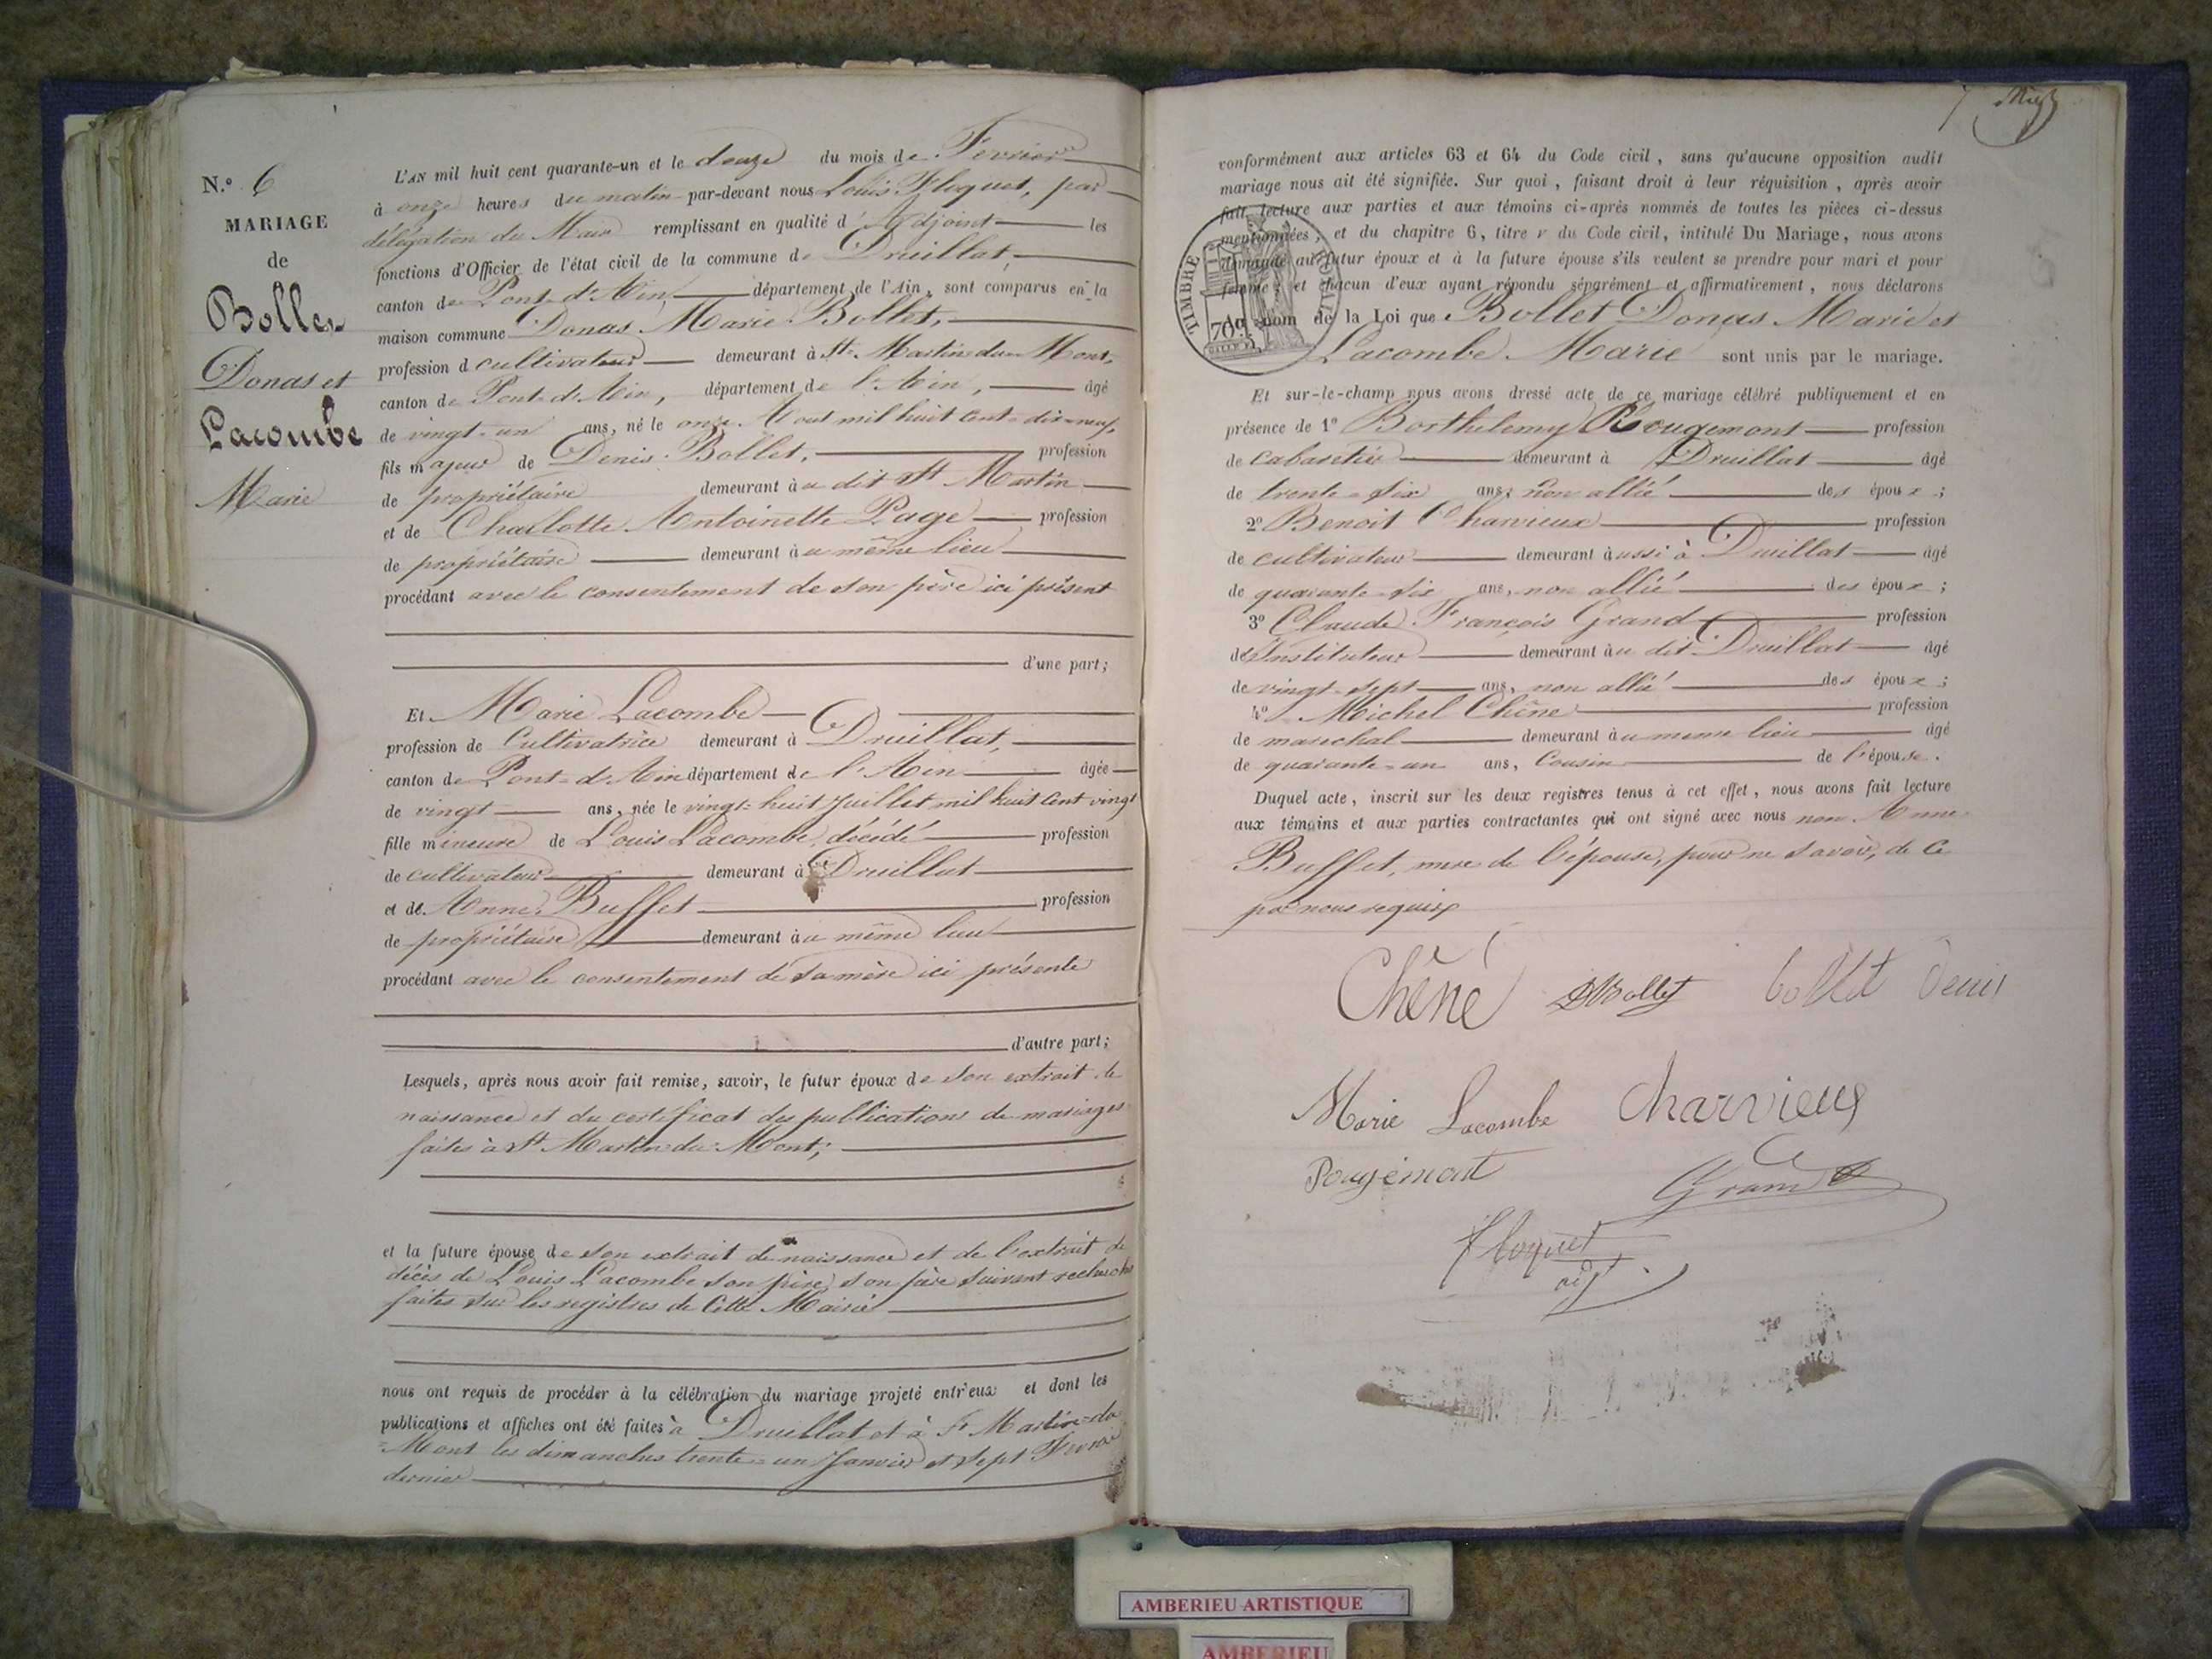 N.° 6
MARIAGE
de
Bollet
Donas et
Lacombe
Marie
L'AN mil huit cent quarante-un et le douze du mois de Fevrier
à onze heures du matin par-devant nous Louis Floquet, par
délégation du Maire remplissant en qualité d'Adjoint les
fonctions d'Officier de l'état civil de la commune de Druillat,
canton de Pont-d'Ain, département de l'Ain, sont comparus en la
maison commune Donas Marie Bollet,
profession d cultivateur demeurant à St Martin du Mont,
canton de Pont-d'Ain, département de l'Ain, âgé
de vingt-un ans, né le onze Aout mil huit cent dix-neuf,
fils majeur de Denis Bollet, profession
de propriétaire demeurant au dit St Martin
et de Charlotte Antoinette Page profession
de propriétaire demeurant au même lieu
procédant avec le consentement de son père ici présent
d'une part;
Et Marie Lacombe
profession de Cultivatrice demeurant à Druillat,
canton de Pont-d'Ain département de l'Ain âgée
de vingt ans, née le vingt-huit Juillet mil huit cent vingt
fille mineure de Louis Lacombe, décédé profession
de cultivateur demeurant à Druillat
et de Anne Buffet profession
de propriétaire demeurant au même lieu
procédant avec le consentement de sa mère ici présente
d'autre part;
Lesquels, après nous avoir fait remise, savoir, le futur époux de son extrait de
naissance et du certificat des publications de mariages
faites à St Martin du Mont;
et la future épouse de son extrait de naissance et de l'extrait de
décès de Louis Lacombe son père, son père suivant recherches
faites sur les registres de cette Mairie
nous ont requis de procéder à la célébration du mariage projeté entr'eux et dont les
publications et affiches ont été faites à Druillat et à St Martin-du
=Mont les dimanches trente-un Janvier et sept Fevrier
dernier
7
conformément aux articles 63 et 64 du Code civil, sans qu'aucune opposition audit
mariage nous ait été signifiée. Sur quoi, faisant droit à leur réquisition, après avoir
fait lecture aux parties et aux témoins ci-après nommés de toutes les pièces ci-dessus
mentionnées, et du chapitre 6, titre v du Code civil, intitulé Du Mariage, nous avons
demandé au futur époux et à la future épouse s'ils veulent se prendre pour mari et pour
femme; et chacun d'eux ayant répondu séparément et affirmativement, nous déclarons
au nom de la Loi que Bollet Donas Marie et
Lacombe Marie sont unis par le mariage.
TIMBRE ROYAL
70c
Et sur-le-champ nous avons dressé acte de ce mariage célébré publiquement et en
présence de 1° Barthelemy Rougemont profession
de cabaretier demeurant à Druillat âgé
de trente-six ans, non allié des époux;
2° Benoit Charvieux profession
de cultivateur demeurant aussi à Druillat âgé
de quarante-six ans, non allié des époux;
3° Claude François Grand profession
de Instituteur demeurant au dit Druillat âgé
de vingt-sept ans, non allié des époux;
4° Michel Chêne profession
de marechal demeurant au meme lieu âgé
de quarante-un ans, Cousin de l'épouse.
Duquel acte, inscrit sur les deux registres tenus à cet effet, nous avons fait lecture
aux témoins et aux parties contractantes qui ont signé avec nous non Anne
Buffet, mere de l'épouse, pour ne savoir, de ce
par nous requis
Chêne DMBollet bollet Denis
Marie Lacombe Charvieux
Rougemont Grand
Floquet
adj
AMBERIEU ARTISTIQUE
AMBERIEU